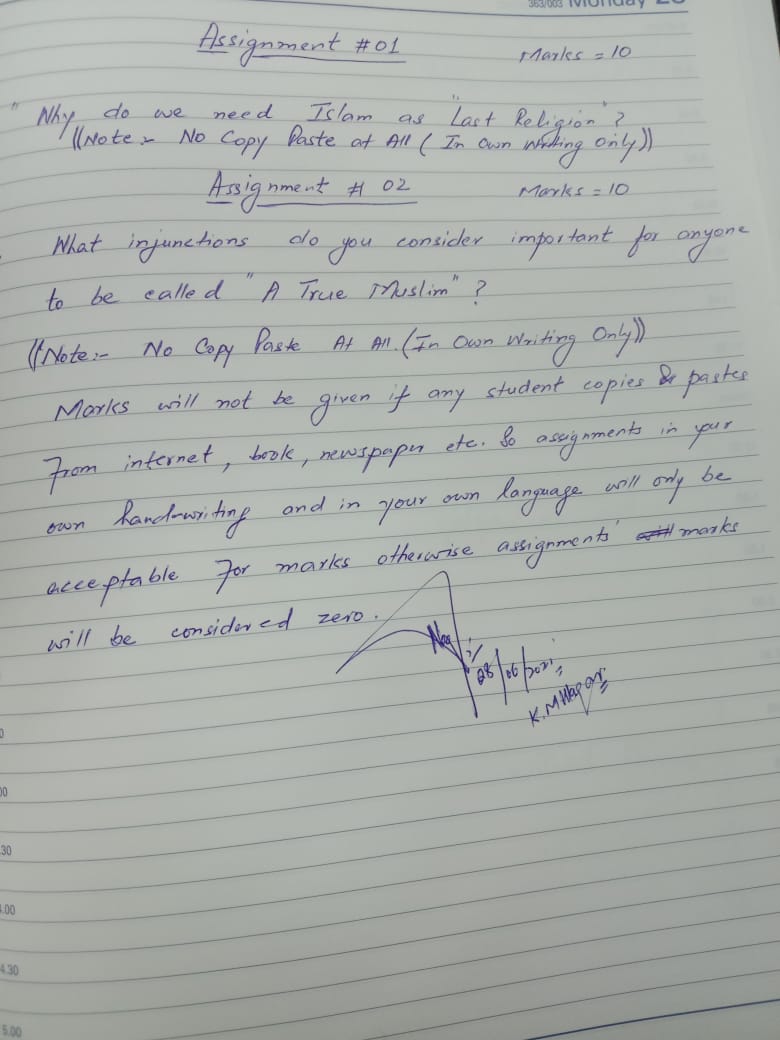 363/003 Monday
Assignment #01
Marks = 10
"Why do we need Islam as "Last Religion"?
((Note:- No Copy Paste at All (In Own Writing Only))
Assignment # 02
Marks = 10
What injunctions do you consider important for anyone
to be called "A True Muslim"?
((Note:- No Copy Paste At All. (In Own Writing Only))
Marks will not be given if any student copies & pastes
From internet, book, newspaper etc. So assignments in your
own hand-writing and in your own language will only be
acceptable For marks otherwise assignments' marks
will be considered zero.
28/06/2021
K.M.Waqar
30
4.30
5.00